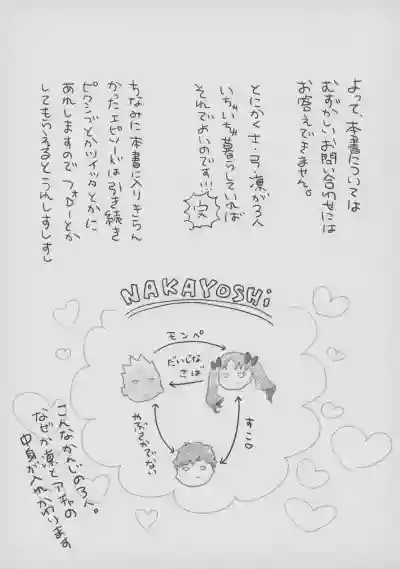 よって、本書については
むずかしいお問い合わせには
お答えできません。
とにかくさ…弓、凛が3人
いちゃいちゃ暮らしていれば
それでよいのです!!!
ちなみに本書に入りきらん
かったエピソードは引き続き
ピクシブとかツイッタとかに
あれしますので フォローとか
してもらえるとうれしすしすし
NAKAYOSHi
モンペ
だいじな
さは
すこ。
こんなかんじの3人。
なぜか凛とアチャの
中身が入れかわります